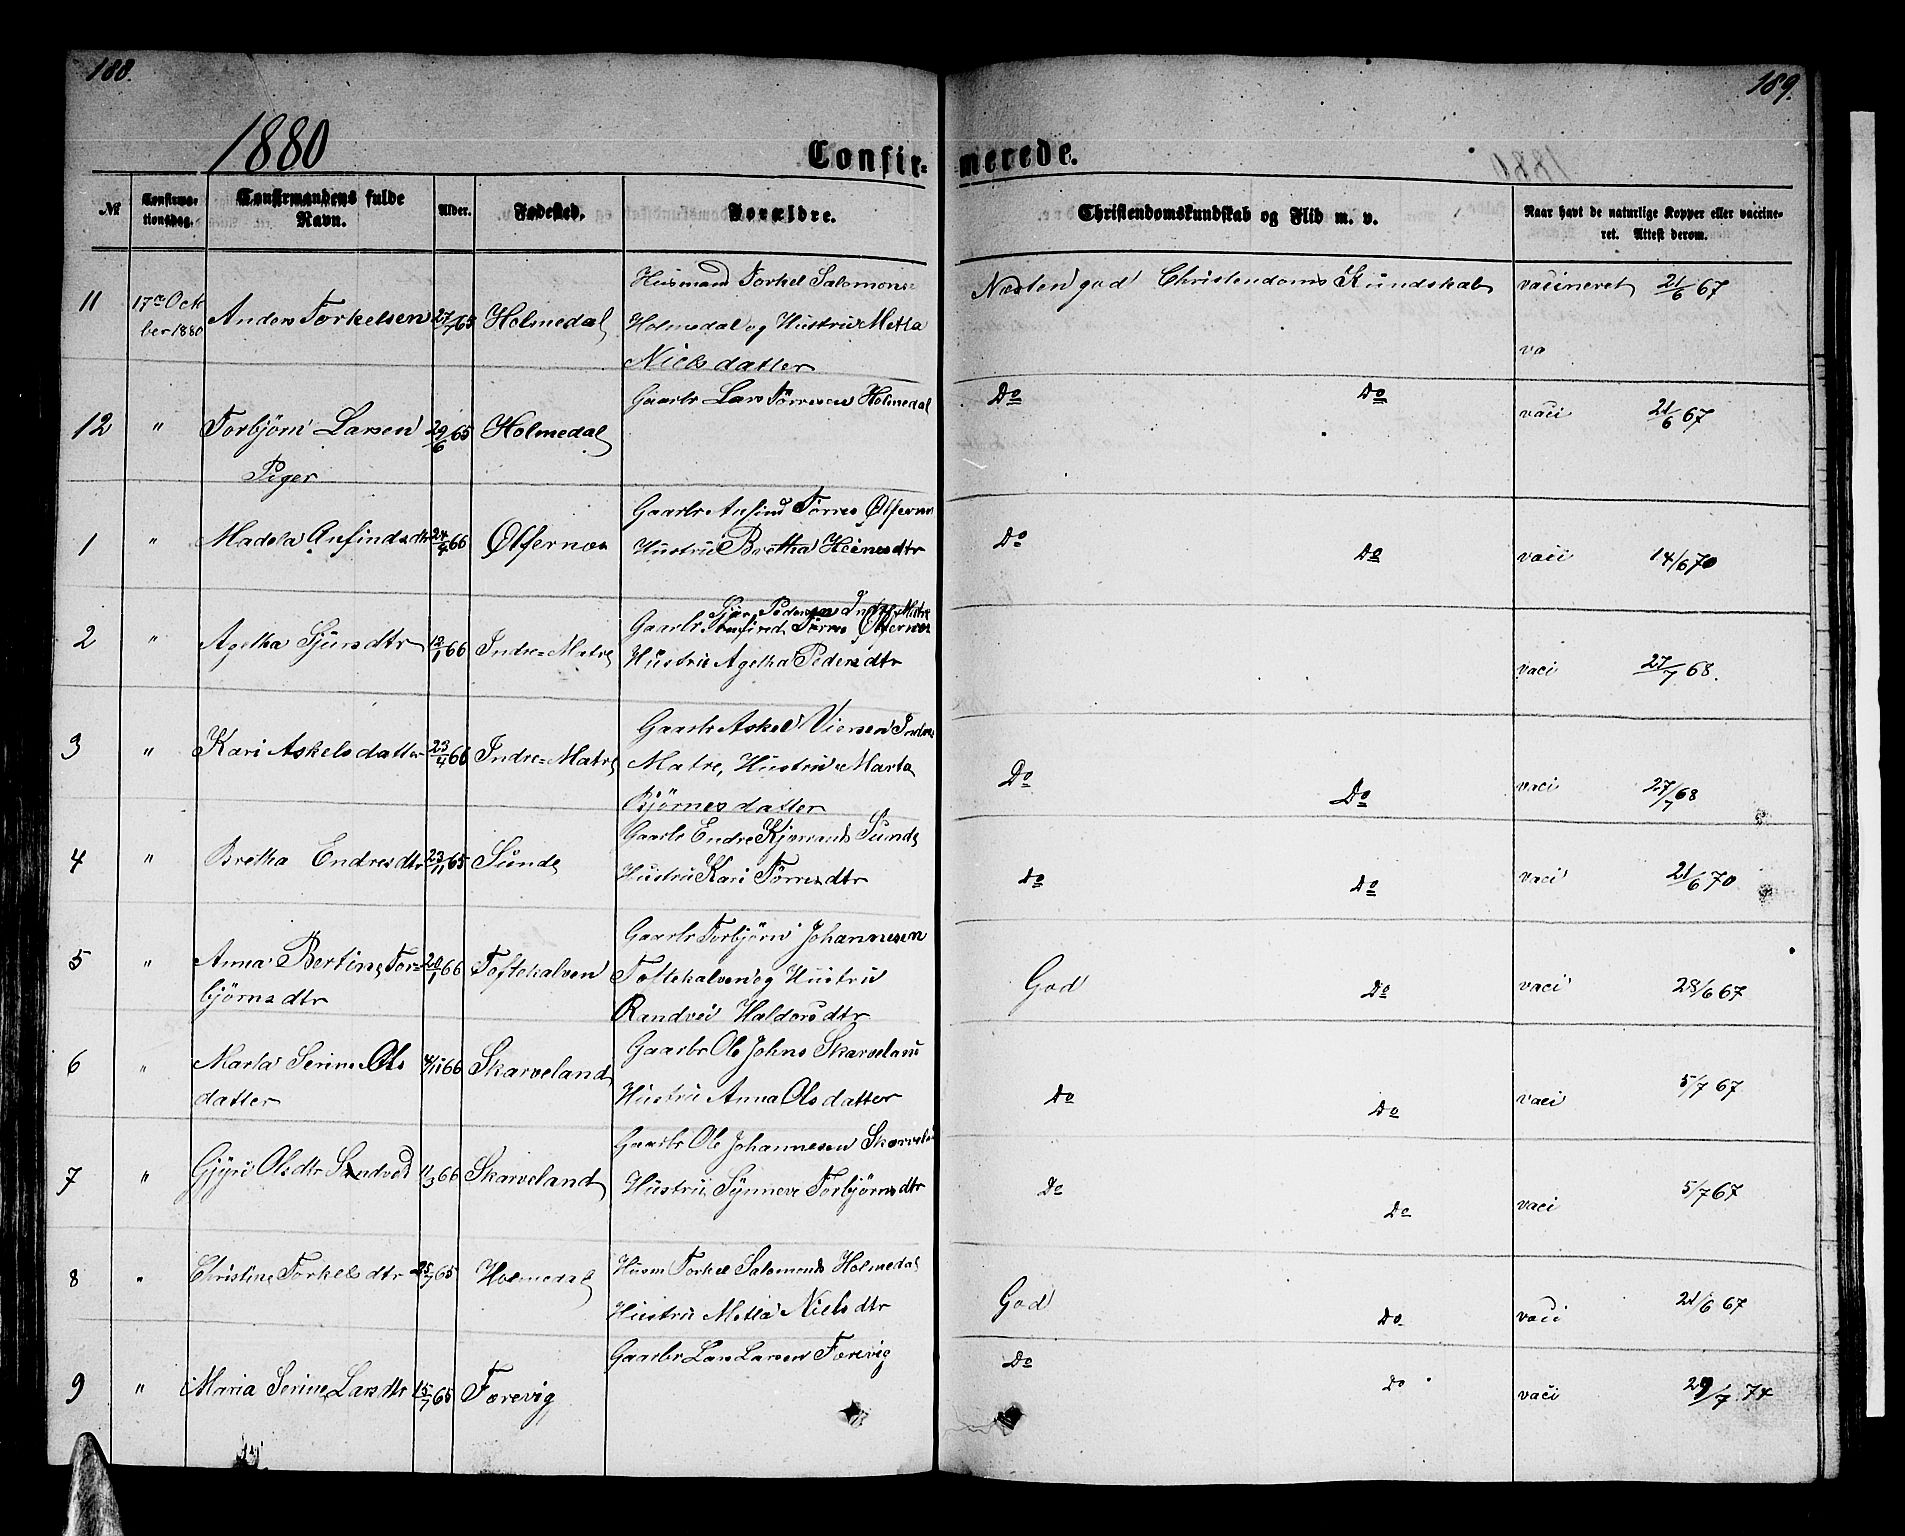 188.
189.
1880
Confir- merede.
№
Confirmationsdag.
Confirmandens fulde Navn.
Alder.
Fødested.
Forældre.
Christendomskundskab og Flid m. v.
Naar havt de naturlige Kopper eller vaccineret. Attest derom.
11 17de Octber 1880 Anders Torkelsen 27/7 65 Holmedal Husmand Torkel Salomons Holmedal og Hustru Metla Nielsdatter Næsten god Christendoms Kundskab vacineret 21/6 67
va
12 " Torbjörn Larsen 29/6 65 Holmedal Gaarbr Lars Törresen Holmedal Do Do vaci 21/6 67
Piger
1 " Madela Anfindsdtr 24/4 66 Ølfernes Gaarbr Anfind Törres Ølfernes Hustru Bretha Heinesdtr Do Do vaci 14/6 70
2 " Agetha Sjursdtr 12/1 66 Indre=Matre Gaarbr Sjur Pedersen Indre Matre Anfind Törres Ølfernes Hustru Agetha Pedersdtr vaci 27/7 68.
3 " Kari Askelsdatter 23/4 66 Indre=Matre Gaarbr Askel Viersen Indre Matre, Hustru Marta Björnesdatter Do Do vaci 27/7 68
4 " Bretha Endresdtr 23/11 65 Sunde Gaarbr Endre Sunde Hustru Kari Törresdtr Do Do vaci 21/6 70
5 " Anna Bertine Torbjörnsdtr 20/1 66 Toftekalven Gaarbr Torbjörn Johannesen Toftekalven og Hustru Randvei Haldorsdtr God Do vaci 28/6 67
6 " Marta Serine Olsdatter 4/11 66 Skarveland Gaarbr Ole Johns Skarveland Hustru Anna Olsdatter Do Do vaci 5/7 67
7 " Gjyri Olsdtr Sandved 11/3 66 Skarveland Gaarbr Ole Johannesen Skarveland Hustru Synneve Torbjörnsdtr Do Do vaci 5/7 67
8 " Christine Torkelsdtr 25/7 65 Holmedal Husm Torkel Salomons Holmedal Hustru Metla Nielsdtr God Do vaci 21/6 67
9 " Maria Serine Larsdtr 15/7 65 Tærevig Gaarbr Lars Larsen Tærevig Do Do vaci 29/7 74